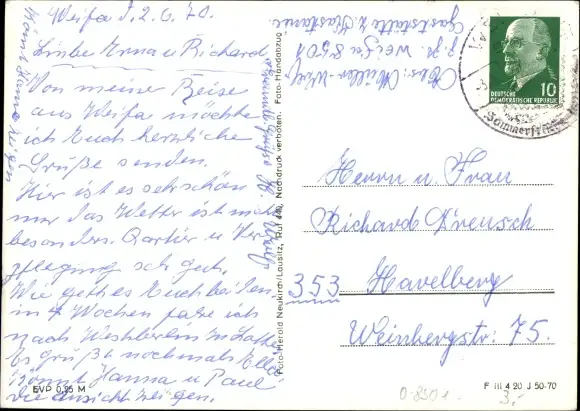 Weifa d. 2.6.70.
Liebe Erna u. Richard
Von meiner Reise
aus Weifa möchte
ich Euch herzliche
Grüße senden.
Hier ist es sehr schön
nur das Wetter ist nicht
besonders. Qartier u. Ver
pflegung sehr gut.
Wie geht es Euch beiden
in 4 Wochen fahre ich
nach Westberlin
Es grüßt nochmals Elli
könnt Hanna u. Paul
die Ansicht zeigen.
EVP 0,25 M
Foto-Herold Neukirch/Lausitz, Ruf 440, Nachdruck verboten. Foto-Handabzug
Abs: Müller
z. Zt. Weifa 8501
Gaststätte z. Kastanie
DEUTSCHE
DEMOKRATISCHE REPUBLIK
10
Sommerfrische
Herrn u. Frau
Richard
353 Havelberg
Weinbergstr. 75.
F III 4 20 J 50-70
0-8501
3,-